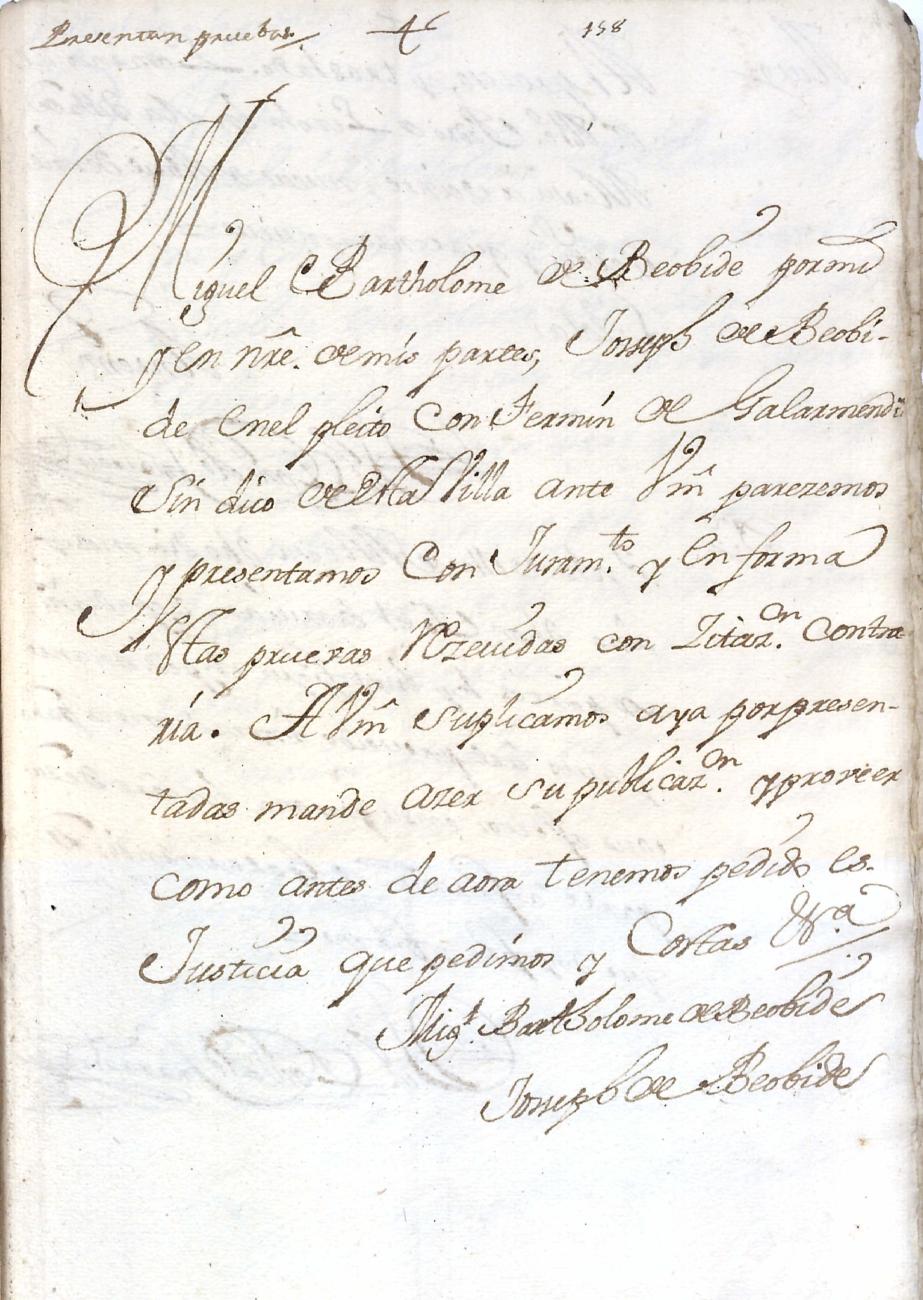 Presentan pruebas. 4 158
Miguel Bartholome de Beobide por mi
y en nrē. de mis partes, Joseph de Beobi-
de en el pleito con Fermin de Galarmendi
sindico de esta Villa ante Vm̄ parezemos
y presentamos con Juram.ᵗᵒ y en forma
estas pruevas Rezeuidas con Zitaz.ᵒⁿ contra
ria. A Vm̄ suplicamos aya por presen-
tadas mande azer su publicaz.ᵒⁿ y proveer
como antes de aora tenemos pedido es.
Justicia que pedimos y Costas &.ᵃ
Mig.ˡ Bartholome de Beobide
Joseph de Beobide